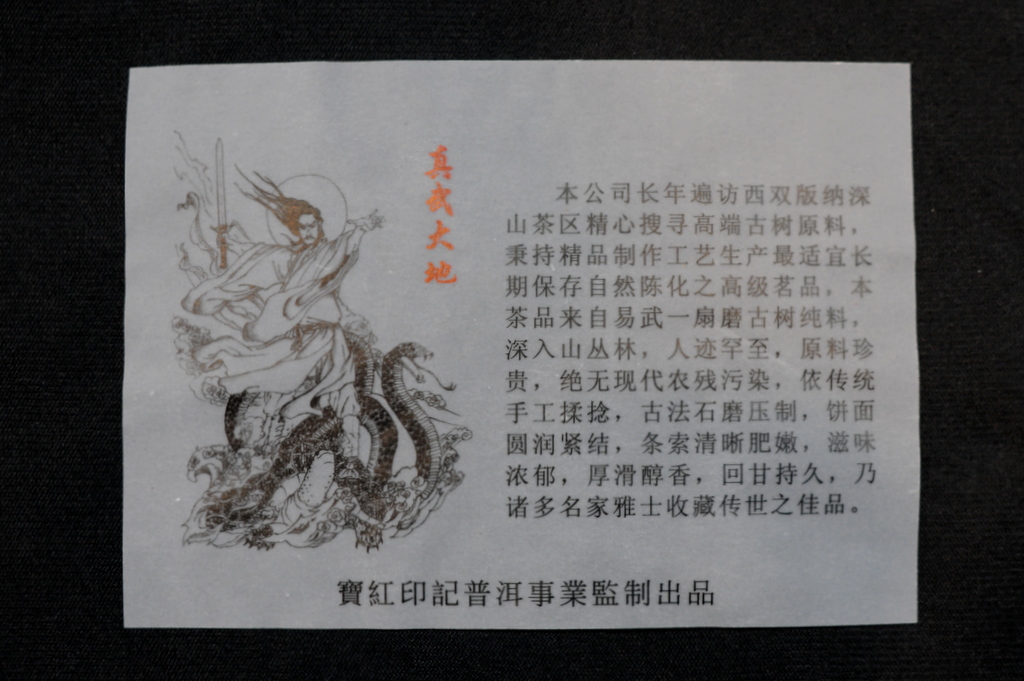 真武大地
本公司长年遍访西双版纳深
山茶区精心搜寻高端古树原料，
秉持精品制作工艺生产最适宜长
期保存自然陈化之高级茗品，本
茶品来自易武一扇磨古树纯料，
深入山丛林，人迹罕至，原料珍
贵，绝无现代农残污染，依传统
手工揉捻，古法石磨压制，饼面
圆润紧结，条索清晰肥嫩，滋味
浓郁，厚滑醇香，回甘持久，乃
诸多名家雅士收藏传世之佳品。
寶紅印記普洱事業監制出品